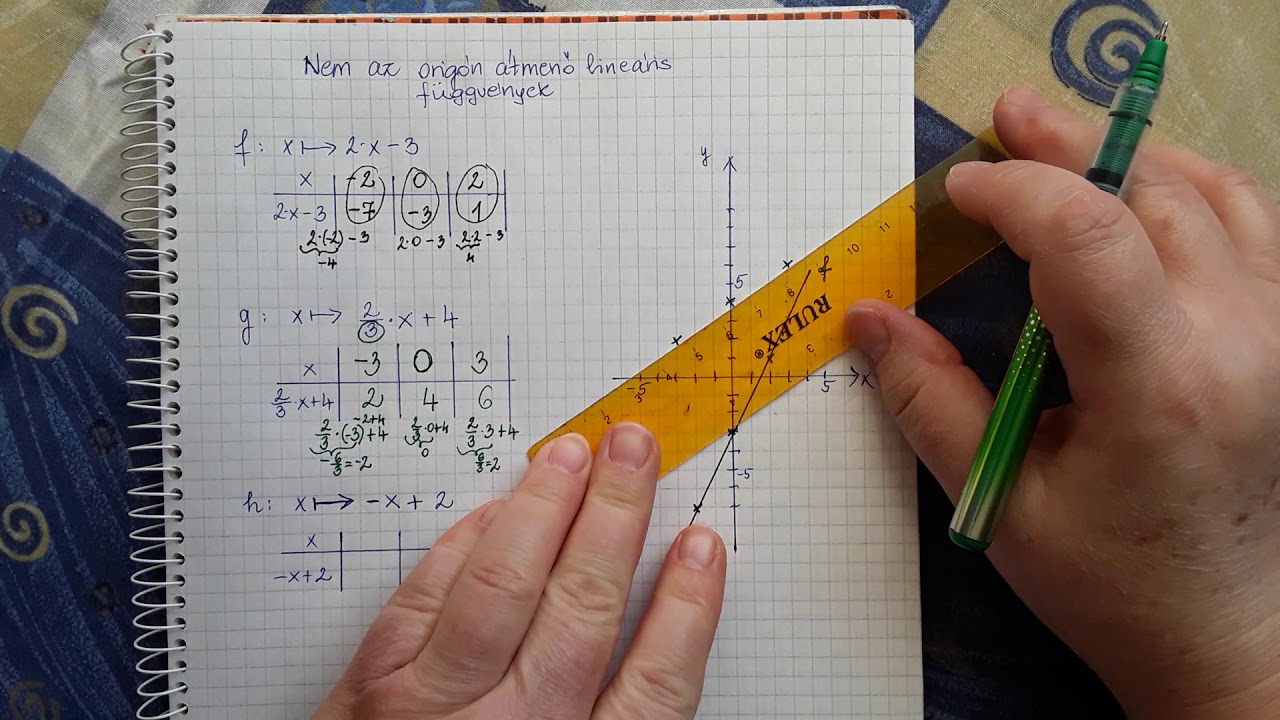 Nem az origón átmenő lineáris
függvények
f: x ↦ 2·x−3
x | −2 | 0 | 2
2·x−3 | −7 | −3 | 1
2·(−2)−3 2·0−3 2·2−3
−4 4
g: x ↦ 2/3·x+4
x | −3 | 0 | 3
2/3·x+4 | 2 | 4 | 6
−2+4
2/3·(−3)+4 2/3·0+4 2/3·3+4
−6/3=−2 0 6/3=2
h: x ↦ −x+2
x
−x+2
y
5
f
−5 5 x
−5
RULEX®
2 3 5 6 7 8 10 11
2 3